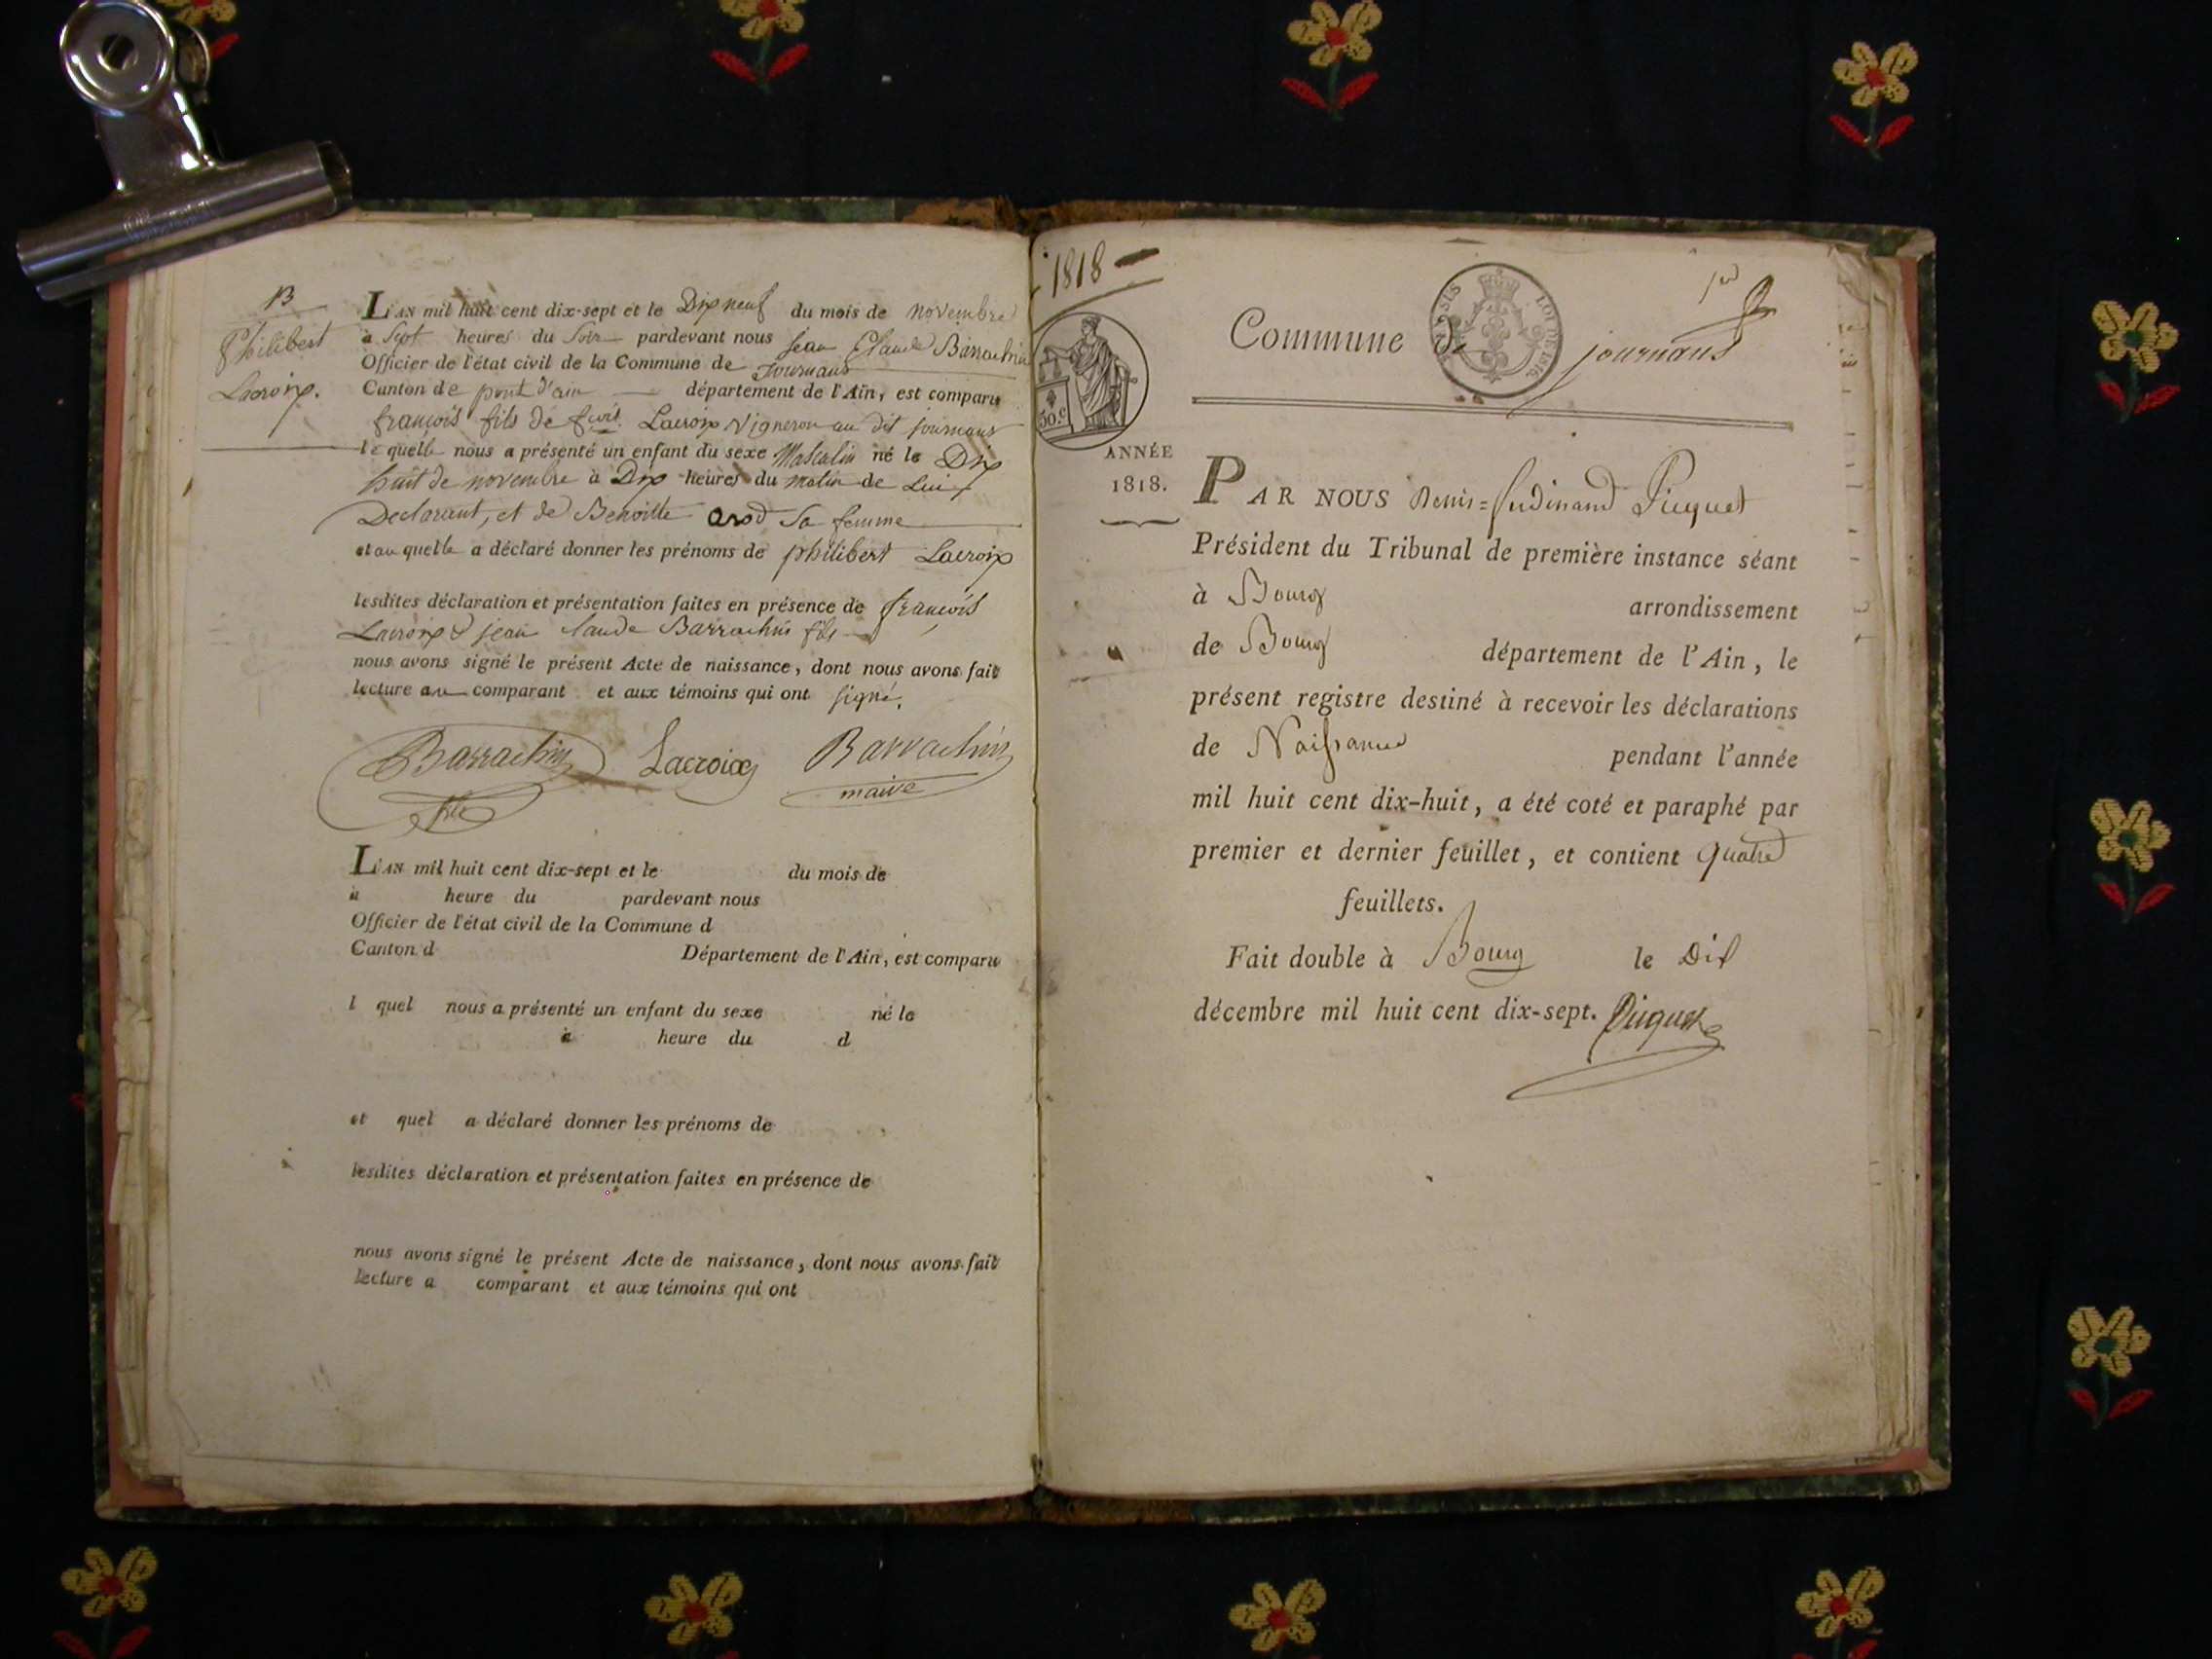 13
Philibert
Lacroix.
L'AN mil huit cent dix-sept et le Dix neuf du mois de novembre
à Sept heures du Soir pardevant nous jean Claude Barrachin
Officier de l'état civil de la Commune de Journans
Canton de pont d'ain département de l'Ain, est comparu
françois fils de fçois Lacroix Vigneron au dit journans
lequell nous a présenté un enfant du sexe Masculin né le Dix
huit de novembre à Dix heures du matin de Lui
Declarant, et de Benoitte arod Sa femme
et au quell a déclaré donner les prénoms de philibert Lacroix
lesdites déclaration et présentation faites en présence de françois
Lacroix & jean claude Barrachin fils
nous avons signé le présent Acte de naissance, dont nous avons fait
lecture au comparant et aux témoins qui ont signé.
Barrachin Lacroix Barrachin
fils maire
L'AN mil huit cent dix-sept et le du mois de
à heure du pardevant nous
Officier de l'état civil de la Commune d
Canton d Département de l'Ain, est comparu
l quel nous a présenté un enfant du sexe né le
à heure du d
et quel a déclaré donner les prénoms de
lesdites déclaration et présentation faites en présence de
nous avons signé le présent Acte de naissance, dont nous avons fait
lecture a comparant et aux témoins qui ont
1818
50.c
ANNÉE
1818.
Commune de journans
LOI DE 1816.
PAR NOUS Denis=ferdinand Picquet
Président du Tribunal de première instance séant
à Bourg arrondissement
de Bourg département de l'Ain, le
présent registre destiné à recevoir les déclarations
de Naissance pendant l'année
mil huit cent dix-huit, a été coté et paraphé par
premier et dernier feuillet, et contient quatre
feuillets.
Fait double à Bourg le Dix
décembre mil huit cent dix-sept. Picquet